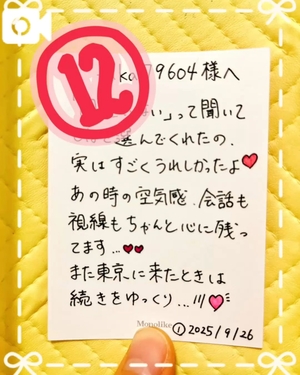 ⑫
79604様へ
い」って聞いて
選んでくれたの、
実はすごくうれしかったよ
あの時の空気感、会話も
視線もちゃんと心に残っ
てます…
また東京に来たときは
続きをゆっくり…
Monolike
① 2025/9/26